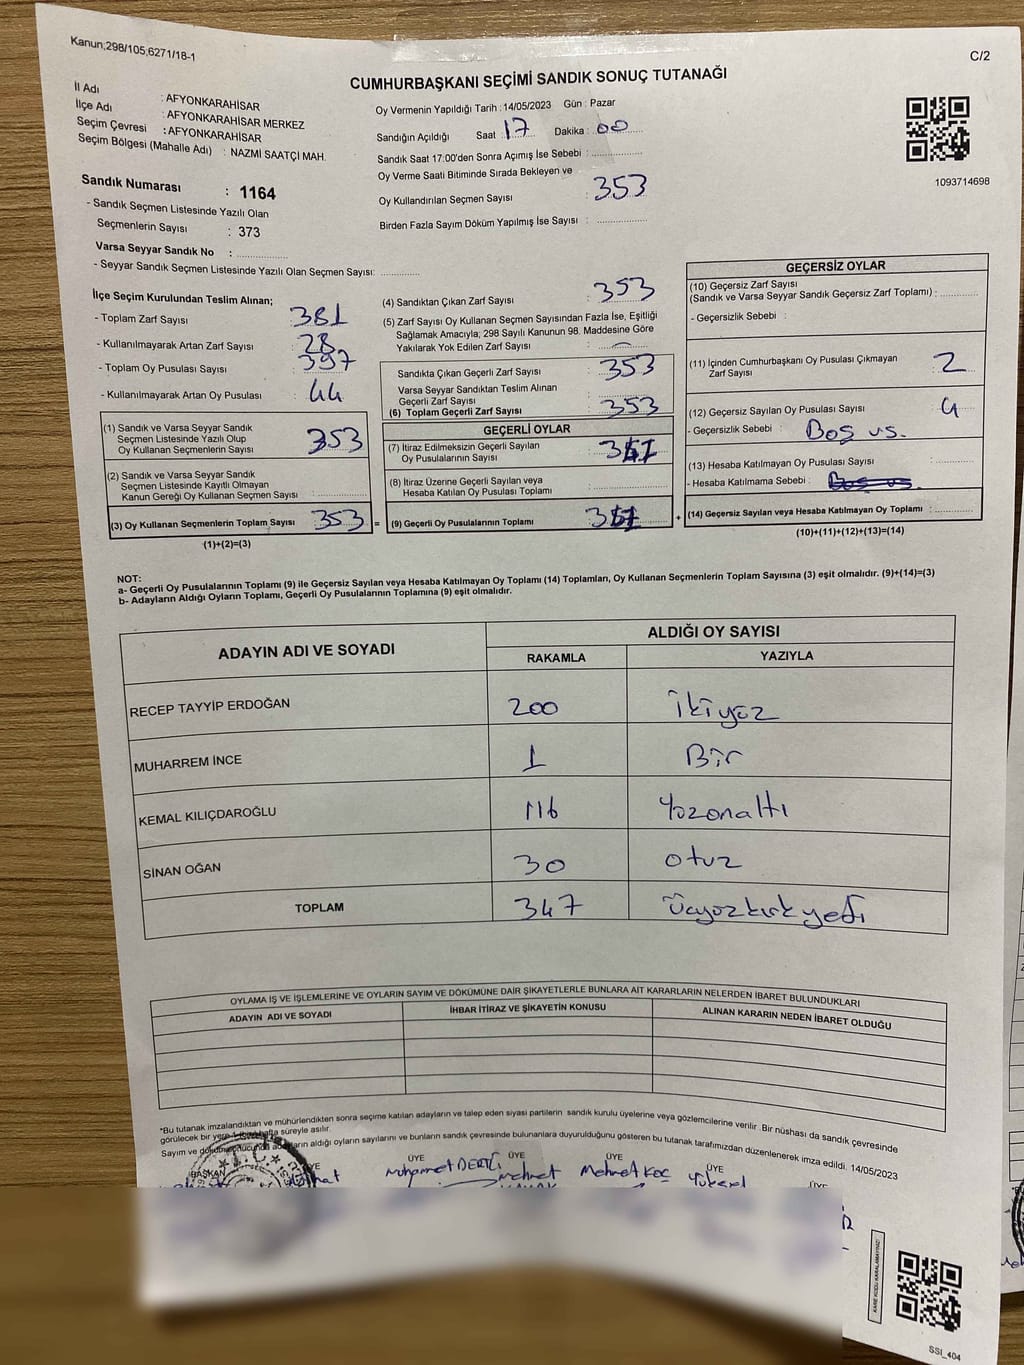 Kanun;298/105;6271/18-1
C/2
CUMHURBAŞKANI SEÇİMİ SANDIK SONUÇ TUTANAĞI
İl Adı : AFYONKARAHİSAR
İlçe Adı : AFYONKARAHİSAR MERKEZ
Seçim Çevresi : AFYONKARAHİSAR
Seçim Bölgesi (Mahalle Adı) : NAZMİ SAATÇİ MAH.
Sandık Numarası : 1164
- Sandık Seçmen Listesinde Yazılı Olan
Seçmenlerin Sayısı : 373
Varsa Seyyar Sandık No :
- Seyyar Sandık Seçmen Listesinde Yazılı Olan Seçmen Sayısı:
Oy Vermenin Yapıldığı Tarih : 14/05/2023 Gün : Pazar
Sandığın Açıldığı Saat : 17 Dakika : 00
Sandık Saat 17:00'den Sonra Açımış İse Sebebi :
Oy Verme Saati Bitiminde Sırada Bekleyen ve
Oy Kullandırılan Seçmen Sayısı : 353
Birden Fazla Sayım Döküm Yapılmış İse Sayısı :
1093714698
İlçe Seçim Kurulundan Teslim Alınan;
- Toplam Zarf Sayısı : 381
- Kullanılmayarak Artan Zarf Sayısı : 28
- Toplam Oy Pusulası Sayısı : 397
- Kullanılmayarak Artan Oy Pusulası : 44
(1) Sandık ve Varsa Seyyar Sandık
Seçmen Listesinde Yazılı Olup
Oy Kullanan Seçmenlerin Sayısı : 353
(2) Sandık ve Varsa Seyyar Sandık
Seçmen Listesinde Kayıtlı Olmayan
Kanun Gereği Oy Kullanan Seçmen Sayısı :
(3) Oy Kullanan Seçmenlerin Toplam Sayısı : 353 =
(1)+(2)=(3)
(4) Sandıktan Çıkan Zarf Sayısı : 353
(5) Zarf Sayısı Oy Kullanan Seçmen Sayısından Fazla İse, Eşitliği
Sağlamak Amacıyla; 298 Sayılı Kanunun 98. Maddesine Göre
Yakılarak Yok Edilen Zarf Sayısı : –
Sandıkta Çıkan Geçerli Zarf Sayısı : 353
Varsa Seyyar Sandıktan Teslim Alınan
Geçerli Zarf Sayısı :
(6) Toplam Geçerli Zarf Sayısı : 353
GEÇERLİ OYLAR
(7) İtiraz Edilmeksizin Geçerli Sayılan
Oy Pusulalarının Sayısı :
(8) İtiraz Üzerine Geçerli Sayılan veya
Hesaba Katılan Oy Pusulası Toplamı :
(9) Geçerli Oy Pusulalarının Toplamı : +
GEÇERSİZ OYLAR
(10) Geçersiz Zarf Sayısı
(Sandık ve Varsa Seyyar Sandık Geçersiz Zarf Toplamı) :
- Geçersizlik Sebebi :
(11) İçinden Cumhurbaşkanı Oy Pusulası Çıkmayan
Zarf Sayısı : 2
(12) Geçersiz Sayılan Oy Pusulası Sayısı : 4
- Geçersizlik Sebebi : Boş vs.
(13) Hesaba Katılmayan Oy Pusulası Sayısı :
- Hesaba Katılmama Sebebi : Boş vs
(14) Geçersiz Sayılan veya Hesaba Katılmayan Oy Toplamı :
(10)+(11)+(12)+(13)=(14)
NOT:
a- Geçerli Oy Pusulalarının Toplamı (9) ile Geçersiz Sayılan veya Hesaba Katılmayan Oy Toplamı (14) Toplamları, Oy Kullanan Seçmenlerin Toplam Sayısına (3) eşit olmalıdır. (9)+(14)=(3)
b- Adayların Aldığı Oyların Toplamı, Geçerli Oy Pusulalarının Toplamına (9) eşit olmalıdır.
ADAYIN ADI VE SOYADI ALDIĞI OY SAYISI
RAKAMLA YAZIYLA
RECEP TAYYİP ERDOĞAN 200 ikiyüz
MUHARREM İNCE 1 Bir
KEMAL KILIÇDAROĞLU 116 Yüzonaltı
SİNAN OĞAN 30 otuz
TOPLAM 347 Üçyüzkırkyedi
OYLAMA İŞ VE İŞLEMLERİNE VE OYLARIN SAYIM VE DÖKÜMÜNE DAİR ŞİKAYETLERLE BUNLARA AİT KARARLARIN NELERDEN İBARET BULUNDUKLARI
ADAYIN ADI VE SOYADI İHBAR İTİRAZ VE ŞİKAYETİN KONUSU ALINAN KARARIN NEDEN İBARET OLDUĞU
*Bu tutanak imzalandıktan ve mühürlendikten sonra seçime katılan adayların ve talep eden siyasi partilerin sandık kurulu üyelerine veya gözlemcilerine verilir .Bir nüshası da sandık çevresinde
görülecek bir yere hafta süreyle asılır.
Sayım ve adayların aldığı oyların sayılarını ve bunların sandık çevresinde bulunanlara duyurulduğunu gösteren bu tutanak tarafımızdan düzenlenerek imza edildi. 14/05/2023
BAŞKAN ÜYE ÜYE ÜYE ÜYE ÜYE
Mehmet Mehmet Koç Yüksel
KARE KODU KARALAMAYINIZ!
SSI_404